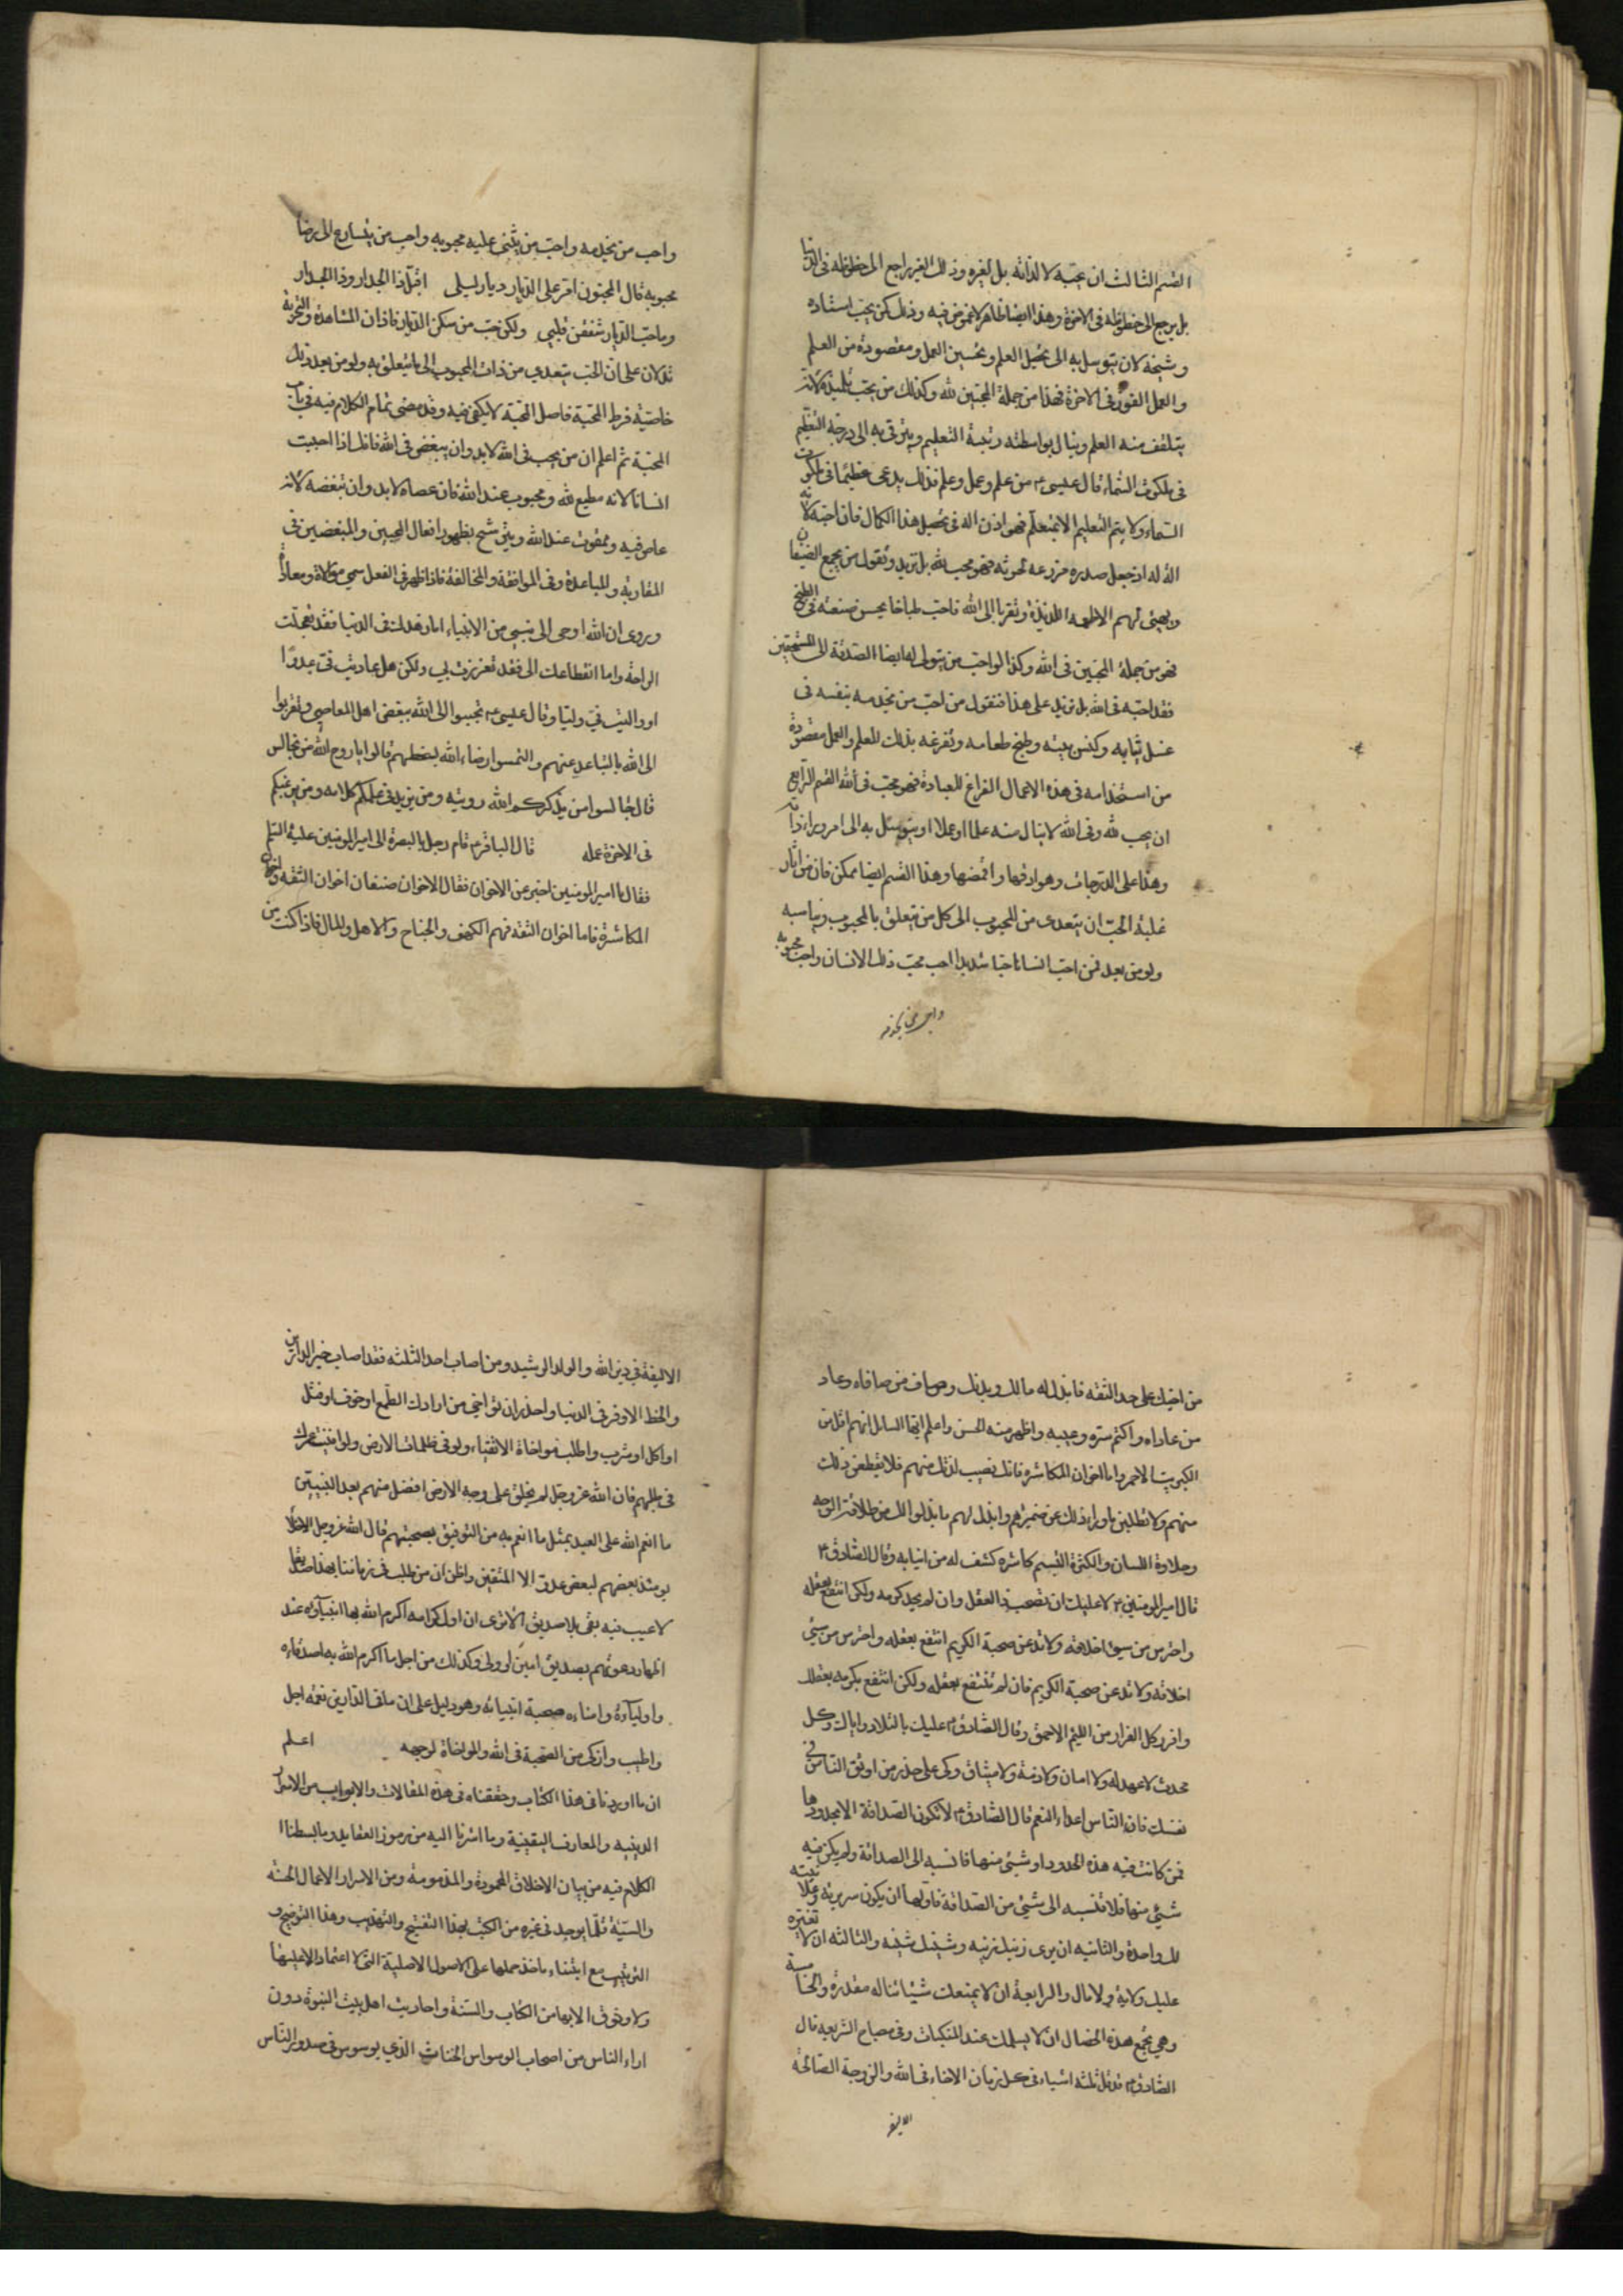 القسم الثالث ان يحبّه لا لذاته بل لغيره وذلك الغير راجع الى حظوظه فى الدنيا
بل يرجع الى حظوظه فى الاخرة وهذا ايضا ظاهر لا غموض فيه وذلك كمن يحب استاده
وشيخه لان يتوسل به الى تحصيل العلم وتحسين العمل ومقصوده من العلم
والعمل الفوز فى الاخرة فهذا من جملة المحبّين لله وكذلك من يحب تلميذه لانه
يتلقف منه العلم وينال بواسطته رتبة التعليم ويترقى به الى درجة التعظيم
فى ملكوت السّماء قال عيسى ع من علم وعمل وعلم فذلك يدعى عظيما فى ملكوت
السماء ولا يتم التعليم الا بمتعلّم فهو اذن الة فى تحصيل هذا الكمال فان احبّه لانه
الة له اذ جعل صدره مزرعه لحرثه فهو محب لله بل نزيد ونقول من يجمع الضيفان
ويهيئ لهم الاطعمه اللذيذة وتقربا الى الله فاحب طباخا يحسن صنعته فى الطبخ
فهو من جملة المحبّين فى الله وكذا لو احبّ من يتولى له ايضا الصدقة الى المستحقين
فقد احبّه فى الله بل نزيد على هذا فنقول من احبّ من يخدمه بنفسه فى
غسل ثيابه وكنس بيته وطبخ طعامه ويفرغه بذلك للعلم والعمل مقصوده
من استخدامه فى هذه الاعمال الفراغ للعبادة فهو محبّ فى الله القسم الرّابع
ان يحب لله وفى الله لا لينال منه علما او عملا او يتوسّل به الى امر وراء ذاته
وهذا على الدّرجات وهو ادقها واغمضها وهذا القسم ايضا ممكن فان من اثار
غلبة الحبّ ان يتعدى من المحبوب الى كل من يتعلق بالمحبوب ويناسبه
ولو من بعد فمن احبّ انسانا حبّا شديدا احب محبّ ذلك الانسان واحبّ محبوبه
واحب من يخدمه
واحب من يخدمه واحبّ من يثنى عليه محبوبه واحب من يتسارع الى رضا
محبوبه قال المجنون امرّ على الدّيار ديار ليلى اقبّل ذا الجدار وذا الجدار
وما حبّ الدّيار شغفن قلبي ولكن حبّ من سكن الدّيار فاذن المشاهدة والتجربة
تدلان على انّ الحبّ يتعدي من ذات المحبوب الى ما يتعلق به ولو من بعد وذلك
خاصّيّة فرط المحبّة فاصل المحبّة لا يكفى فيه وقد مضى تمام الكلام فيه فى باب
المحبّة ثم اعلم ان من يحب فى الله لا بد وان يبغض فى الله فانك اذا احببت
انسانا لانه مطيع لله ومحبوب عند الله فان عصاه لا بد وان تبغضه لانه
عاص فيه وممقوت عند الله ويترشح بظهور افعال المحبين والمبغضين فى
المقاربة والمباعدة وفى الموافقة والمخالفة فاذا ظهر فى الفعل سمى موالاة ومعاداة
ويروى ان الله اوحى الى نبىّ من الانبياء اما زهدك فى الدنيا فقد تعجلت
الراحة واما انقطاعك الى فقد تعززت بي ولكن هل عاديت فىّ عدوّا
او واليت فىّ وليّا وقال عيسى ع تحببوا الى الله ببغض اهل المعاصي وتقربوا
الى الله بالتباعد عنهم والتمسوا رضاء الله بسخطهم قالوا يا روح الله من نجالس
قال جالسوا من يذكركم الله رويته ومن يزيد فى علمكم كلامه ومن يرغبكم
فى الاخرة عمله قال الباقر ع قام رجل بالبصرة الى امير المومنين عليه السّلم
فقال يا امير المومنين اخبر عن الاخوان فقال الاخوان صنفان اخوان الثقه واخوان
المكاشرة فاما اخوان الثقه فهم الكهف والجناح والاهل والمال فاذا كنت من
من اخيك على حد الثقه فابذل له مالك وبدنك وصاف من صافاه وعاد
من عاداه واكتم سرّه وعيبه واظهر منه الحسن واعلم ايّها السايل انهم اقل من
الكبريت الاحمر واما اخوان المكاشره فانك تصيب لذتك منهم فلا تقطعن ذلك
منهم ولا تطلبن ما وراء ذلك عن ضميرهم وابذل لهم ما بذلوا لك من طلاقة الوجه
وحلاوة اللسان والكشرة التبسم كاشره كشف له من انيابه وقال الصّادق ع
قال امير المومنين ع لا عليك ان تصحب ذا العقل وان لم يحد كرمه ولكن انتفع بعقله
واحترس من سيئ اخلاقه ولا تدعن صحبة الكريم انتفع بعقله واحترس من سيّئ
اخلاقه ولا تدعن صحبة الكريم فان لم تنتفع بعقله ولكن انتفع بكرمه بعقلك
وافرر كل الفرار من اللئيم الاحمق وقال الصّادق ع عليك بالتلاد واياك وكل
محدث لا عهد له ولا امان ولا ذمة ولا ميثاق وكن على حذر من اوثق النّاس فى
نفسك فان النّاس اعداء النعم قال الصّادق ع لا تكون الصّداقة الا بحدودها
فمن كانت فيه هذه الحدود او شيئ منها فانسبه الى الصداقة ولم يكن فيه
شيئ منها فلا تنسبه الى شيئ من الصّداقة فاوّلها ان يكون سريرته وعلانيته
لك واحدة والثانيه ان يرى زينك زينه وشينك شينه والثالثه ان لا تغيّره
عليك ولاية ولا مال والرابعة ان لا يمنعك شيئا تناله مقدرته والخامسة
وهى تجمع هذه الخصال ان لا يسلمك عند النكبات وفى مصباح الشريعه قال
الصّادق ع قد قل ثلثه اشياء فى كل زمان الاخاء فى الله والزوجة الصّالحة
الاليفه
الاليفة في دين الله والولد الرشيد ومن اصاب احد الثلثه فقد اصاب خير الدارين
والحظ الاوفر فى الدنيا واحذر ان تؤاخى من ارادك الطمع او خوف او فشل
او اكل او شرب واطلب مواخاة الاتقياء ولو فى ظلمات الارض ولو افنيت عمرك
فى طلبهم فان الله عزوجل لم يخلق على وجه الارض افضل منهم بعد النّبيين
ما انعم الله على العبد بمثل ما انعم به من التوفيق بصحبتهم قال الله عزوجل الاخلّاء
يومئذ بعضهم لبعض عدوّ الا المتقين واظن ان من طلب فى زماننا هذا صديقا
لا عيب فيه بقى بلا صديق الا ترى ان اول كرامه اكرم الله بها انبيآؤه عند
اظهار دعوتهم بصديق امين او ولى وكذلك من اجل ما اكرم الله به اصدقاءه
واولياؤه وامناءه صحبة انبيائه وهو دليل على ان ما فى الدّارين نعمه اجل
واطيب وازكى من الصّحبة فى الله والمواخاة لوجهه اعلم
ان ما اوردنا فى هذا الكتاب وحققناه فى هذه المقالات والابواب من الاسرار
الدينيه والمعارف اليقينية وما اشرنا اليه من رموز العقايد وما بسطنا
الكلام فيه من بيان الاخلاق المحمودة والمذمومة ومن الاسرار الاعمال الحسنه
والسيّئة قلّما يوجد فى غيره من الكتب بهذا التنقيح والتهذيب وهذا التوضيح و
الترتيب مع ابتناء ماخذ جملها على الاصول الاصلية التى لا اعتماد الا عليها
ولا وثوق الا بها من الكتاب والسّنة واحاديث اهل بيت النبوة دون
اراء الناس من اصحاب الوسواس الخناس الّذي يوسوس فى صدور النّاس